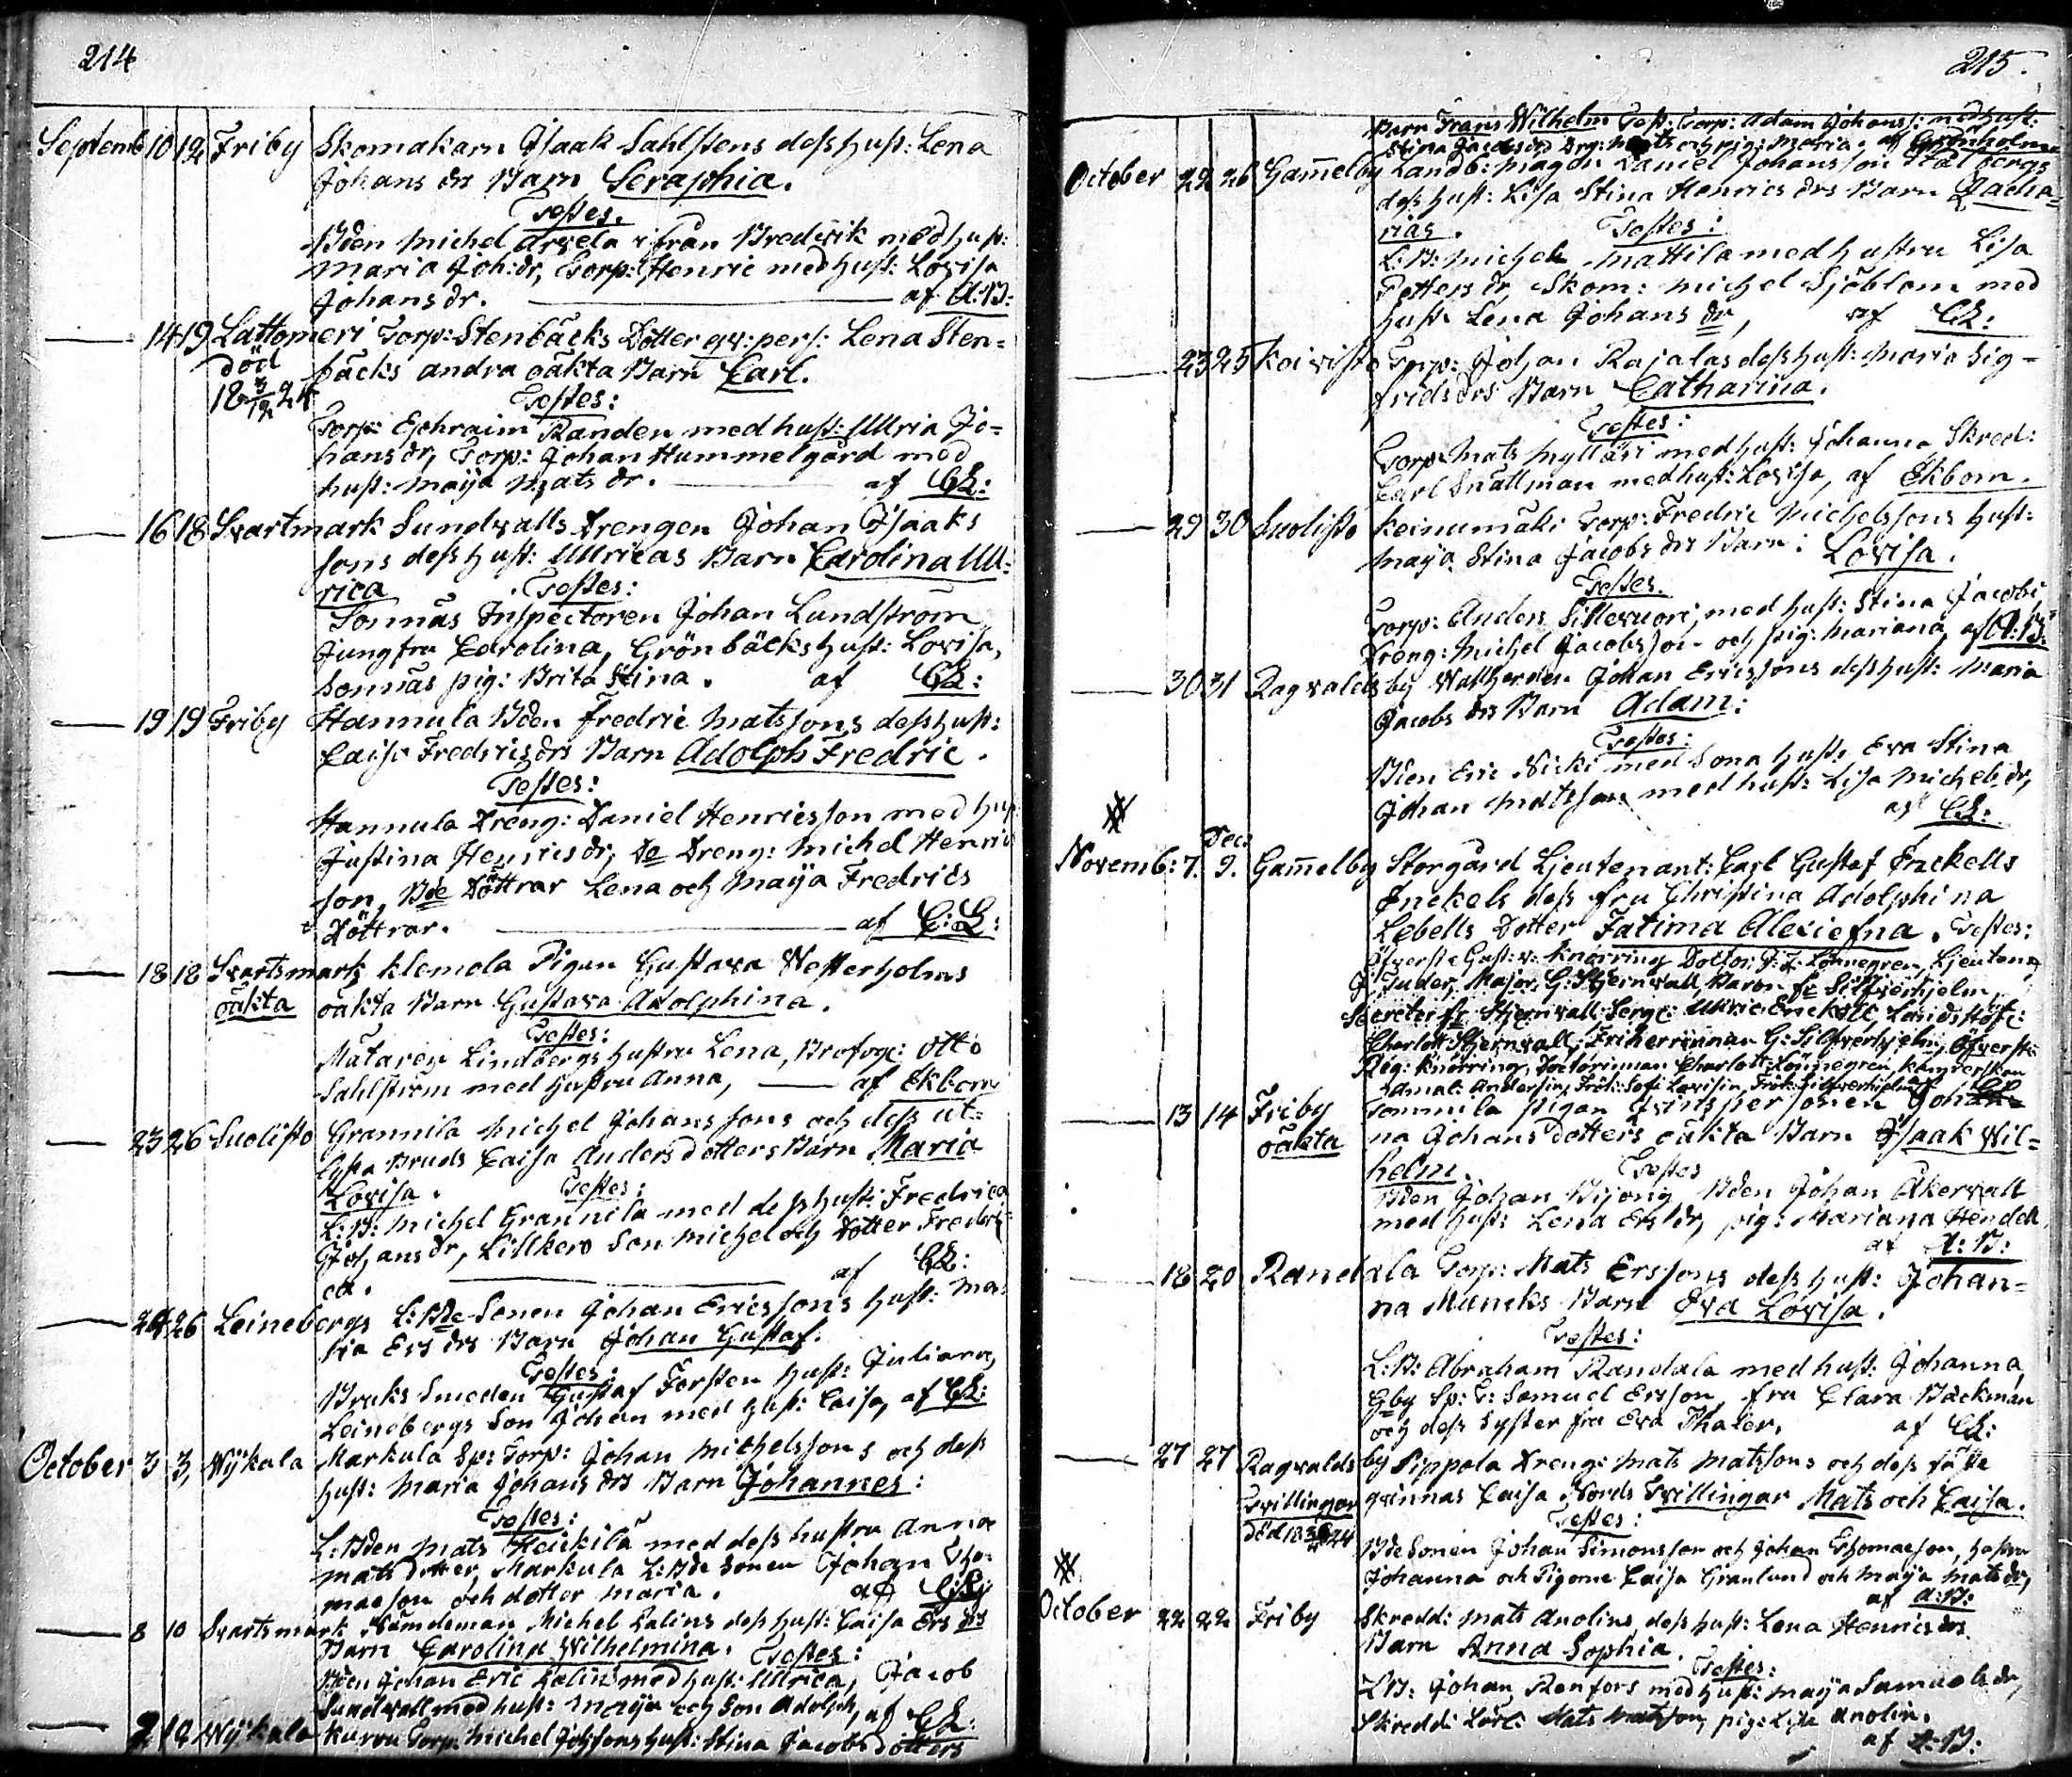 214
Septemb 10 12 Friby Skomakarn Isaak Sahlstens dess hust: Lena
Johans drs Barn Seraphia.
Testes.
Bden Michel Arvela ifrån Bredvik med hust:
Maria Joh:dr, Torp: Henric med hust: Lovisa
Johans dr. af A:B:
14 19 Lattomeri Torp: Stenbäcks Dotter qv:pers: Lena Sten=
död bäcks andra oäkta Barn Carl.
18 3/12 24 Testes:
Torp: Ephraim Randen med hust: Ullrica Jo=
hans dr, Torp: Johan Hummelgård med
hust: Maija Mats dr. af CL:
16 18 Svartsmark Sundvalls Drengen Johan Isaaks
sons dess hust: Ullricas Barn Carolina Ull=
rica Testes:
Sonnäs Inspectoren Johan Lundström
Jungfru Carolina, Grönbäcks hust: Lovisa,
Sonnäs pig: Brita Stina. af CL:
19 19 Friby Hannula Bden Fredric Matssons dess hust:
Caisa Fredrics drs Barn Adolph Fredric.
Testes:
Hannula Dreng: Daniel Henricsson med hust
Justina Henrics dr, De Dreng: Michel Henrics
son, Bde Döttrar Lena och Maija Fredrics
Döttrar. af C:L:
18 18 Svartsmark Klemola Pigan Gustava Westerholms
oäkta oäkta Barn Gustava Adolphina.
Testes:
Mätaren Lindbergs hustru Lena, Profoge: Otto
Sahlström med hustru Anna, af Ekbom
23 26 Suolisto Grannila Michel Johanssons och dess ut=
lysta Bruds Caisa Andersdotters Barn Maria
Lovisa. Testes:
L:B: Michel Grannila med dess hust: Fredrica
Johans dr, Lillkero Son Michel och Dotter Fredri
ca. af CL:
24 26 Leinebergs L:Bde Sonen Johan Ericssons hust: Ma=
ria Ers drs Barn Johan Gustaf.
Testes:
Bruks Smeden Gustaf Forsten hust: Juliana,
Leinebergs Son Johan med hust: Caisa, af CL:
October 3 3, Wijkala Markula Sp: Torp: Johan Michelssons och dess
hust: Maria Johans drs Barn Johannes:
Testes:
L:Bden Mats Heickilä med dess hustru Anna
Mats dotter, Markula L:Bde Sonen Johan Tho=
maeson och dotter Maria. af CL:
8 10 Svartsmark Nämdeman Michel Kalins dess hust: Caisa Ers drs
Barn Carolina Wilhelmina. Testes:
Bden Johan Eric Kalin med hust: Ullrica, Jacob
Sundvall med hust: Maija och Son Adolph, af CL:
9 12 Wijkala Kurvu Torp: Michel Johssons hust: Stina Jacobs dotters
215.
Barn Frans Wilhelm Test: Torp: Adam Johanss: med hust:
Stina Jacobs dr, Drg: Mats och pig: Maria, af Grönholm
October 22 26 Gam̄elby Landb: mågen Daniel Johansson Stålbergs
dess hust: Lisa Stina Henrics drs Barn Zacha=
rias. Testes:
L:B: Michel Mattila med hustru Lisa
Petters dr, Skom: Michel Sjöblom med
hust: Lena Johans dr, af CL:
23 25 Koivisto Torp: Johan Rajalas dess hust: Maria Sig=
frids drs Barn Catharina.
Testes:
Torp: Mats Mylläri med hust: Johanna, Skred:
Carl Snällman med hust: Lovisa, af Ekbom.
29 30 Suolisto Keinumäki Torp: Fredric Michelssons hust:
Maija Stina Jacobs drs Barn: Lovisa.
Testes.
Torp: Anders Sillevuori, med hust: Stina Jacobs
Dreng: Michel Jacobsson och pig: Mariana, af A:B:
30 31 Ragvaldsby Johan Ericssons dess hust: Maria
Jacobs drs Barn Adam:
Testes:
Bden Eric Nicki med Sona hust: Eva Stina
Johan Matsson med hust: Lisa Michels dr,
af CL:
Dec:
Novemb: 7. 9. Gam̄elby Storgård Ljeutenant: Carl Gustaf Enckells
Enckels dess fru Christina Adolphina
Lebells Dotter Fatima Alexiefna. Testes:
Öfverste Gust: v: Knorring Doctor: J: Z: Lönnegren, Ljeutena
J: Tuder, Major: G: Stjernvall, Baron Silfverhjelm
Secreter: Stjernvall: Serge: Ullric Enckell Landshöfe:
Charlott Stjernvall, Friherrinnan G: Silfverhjelm, Öfverste
Reg: Knorring, Doctorinnan Charlott Lönnegren,
13 14 Friby Sommila pigan Johan=
oäkta na Johans dotters oäkta Barn Isaak Wil=
helm. Testes
Bden Johan Bijong Bden Johan Åkervall
med hust: Lena Ers dr, pig: Mariana Hendell
af A:B:
18 20 Randala Torp: Mats Erssons dess hust: Johan=
na Muncks Barn Eva Lovisa.
Testes:
L:B: Abraham Randala med hust: Johanna,
Gby Sp: T: Samuel Ersson, fru Clara Backman
och dess Syster fru Eva Thaler. af CL:
27 27 Ragvaldsby Sippola Dreng: Mats Matssons och dess fäste
Tvillingar qvinnas Caisa Nords Tvillingar Mats och Caisa.
Testes:
Bde Sonen Johan Simonsson och Johan Thomaeson, hustru
Johanna och Pigorne Caisa Granlund och Maija Mats dr,
af A:B:
October 22 22 Friby Skredd: Mats Anolins dess hust: Lena Henrics drs
Barn Anna Sophia. Testes:
LB: Johan Renfors med hust: Maija Samuels dr,
Skredd: Lärl: Mats Matsson, pig: Lisa Anolin.
af A:B: